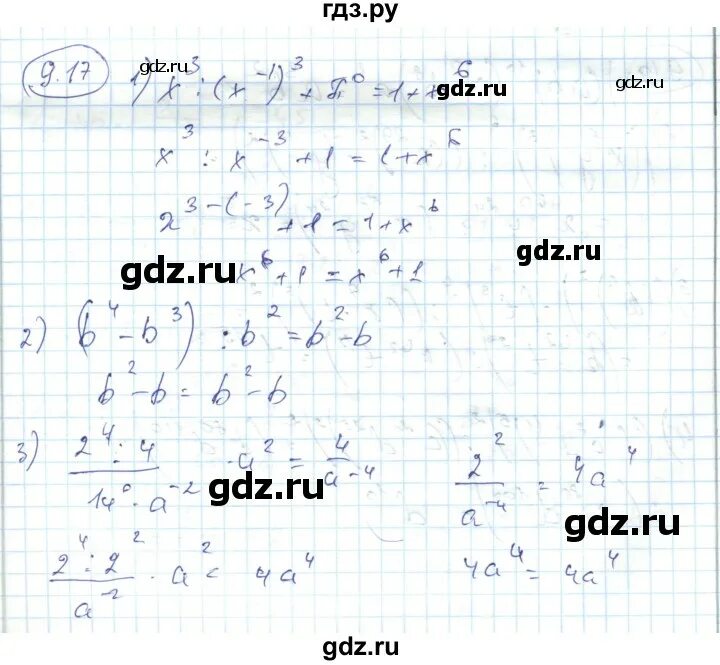 гдз.ру
9.17 1) x³ : (x⁻¹)³ + π⁰ = 1 + x⁶
gdz.ru gdz.ru
x³ : x⁻³ + 1 = 1 + x⁶
x³⁻⁽⁻³⁾ + 1 = 1 + x⁶
gdz.ru gdz.ru
x⁶ + 1 = x⁶ + 1
2) (b⁴ - b³) : b² = b² - b
gdz.ru
b² - b = b² - b
3) 2⁴ : 4 / 14⁰ · a⁻² · a² = 4 / a⁻⁴
2² / a⁻⁴ = 4a⁴
gdz.ru gdz.ru
2⁴ : 2² / a⁻² · a² = 4a⁴
4a⁴ = 4a⁴
gdz.ru gdz.ru
gdz.ru